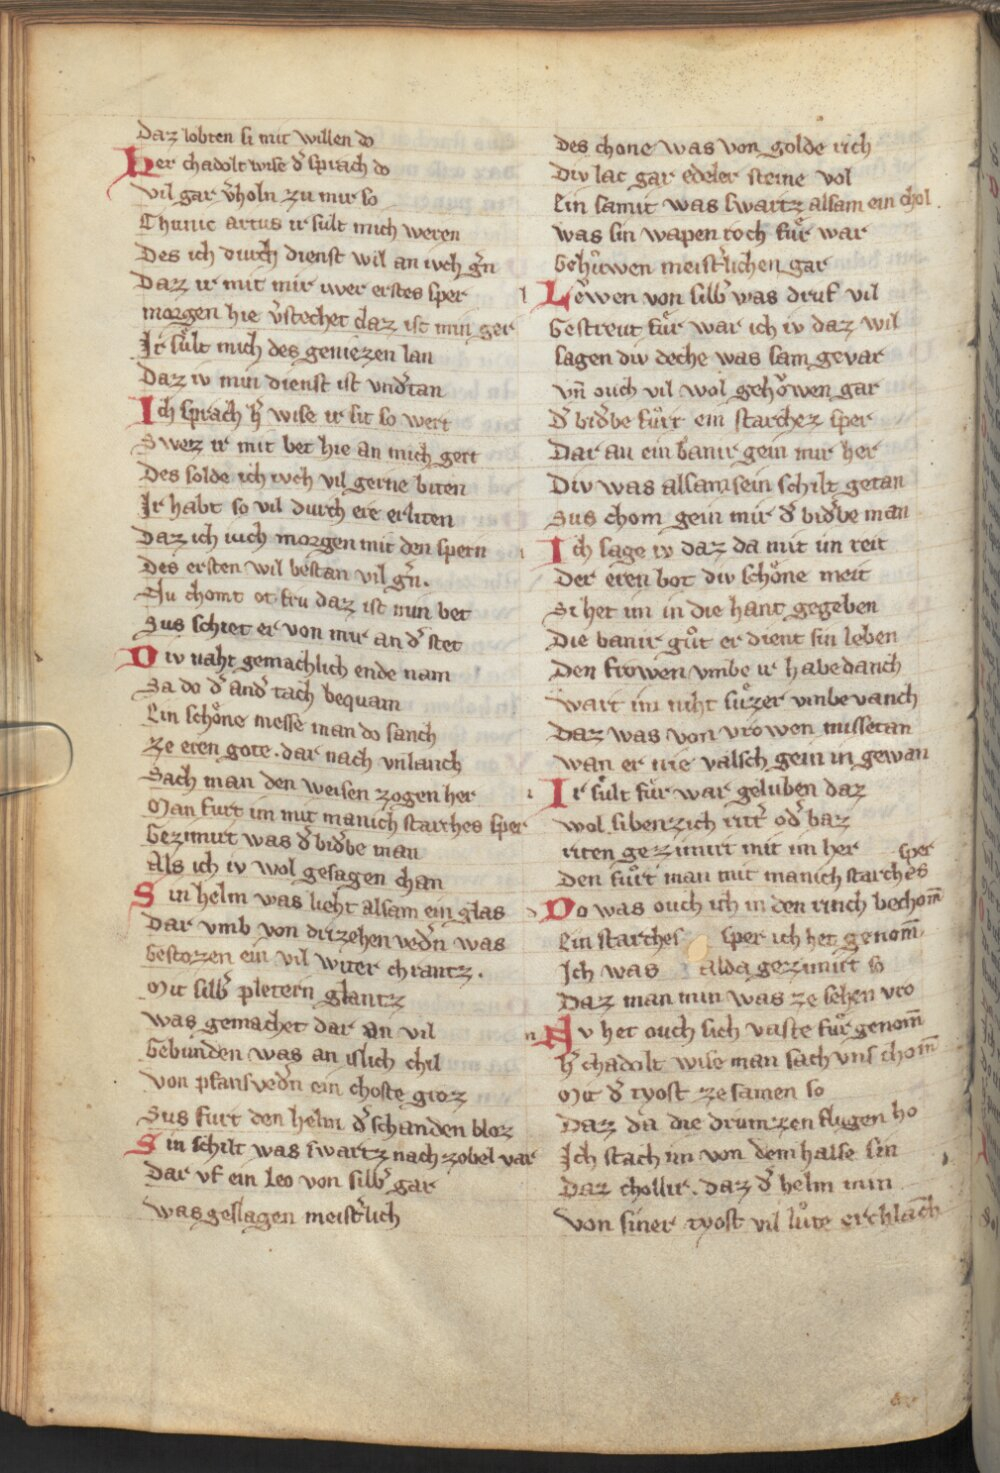 Daz lobten si mit willen do
Her chadolt wise d̾ sprach do
Vil gar v̾holn zu mir so
Chunic artus ir sult mich weren
Des ich durch dienst wil an iuch g̾n
Daz ir mit mir iwer erstes sper
morgen hie v̾stechet daz ist min ger
Ir sůlt mich des geniezen lan
Daz iv min dienst ist vnd̾tan
Ich sprach h̾ wise ir sit so wert
Swez ir mit bet hie an mich gert
Des solde ich iuch vil gerne biten
Ir habt so vil durch ere erliten
Daz ich iuch morgen mit den spern
Des ersten wil bestan vil g̾n.
Nu chomt ot fru daz ist min bet
Sus schiet er von mir an d̾ stet
Div naht gemachlich ende nam
Sa do d̾ and̾ tach bequam
Ein schőne messe man do sanch
ze eren gote. dar nach vnlanch
Sach man den weisen zogen her
Man furt im mit manich starches sper
Gezimirt was d̾ bid̾be man
Als ich iv wol gesagen chan
Sin helm was lieht alsam ein glas
Dar vmb von drizehen ved̾n was
Gestozen ein vil witer chrantz.
Mit silb̾ pletern glantz
was gemachet dar an vil
Gebunden was an islich chil
Von pfansved̾n ein choste groz
Sus furt den helm d̾ schanden bloz
Sin schilt was swartz nach zobel var
Dar vf ein leo von silb̾ gar
was geslagen meist̾lich
Des chone was von golde rich
Div lac gar edeler steine vol
Ein samit was swartz alsam ein chol
was sin wapen roch fůr war
Gehǒwen meist̾lichen gar
Lěwen von silb̾ was druf vil
Gestreut fůr war ich iv daz wil
sagen div deche was sam gevar
vn̄ ouch vil wol gehǒwen gar
d̾ bid̾be fůrt ein starchez sper
Dar an ein banir gein mir her
Div was alsam sein schilt getan
Sus chom gein mir d̾ bid̾be man
Ich sage iv daz da mit im reit
Der eren bot div schǒne meit
Si het im in die hant gegeben
Die banir gůt er dient sin leben
Den frowen vmbe ir habedanch
wart im niht sůzer vmbevanch
Daz was von vrowen missetan
wan er nie valsch gein in gewan
Ir sůlt fůr war geluben daz
wol sibenzich ritt̾ od̾ baz
riten gezimirt mit im her
Den fůrt man mit manich starches sper
Do was ouch ich in den rinch bechom̄
Ein starches sper ich het genom̄.
Ich was alda gezimirt so
Daz man min was ze sehen vro
Nv het ouch sich vaste fůr genom̄
h̾ chadolt wise man sach vns chom̄
Mit d̾ tyost ze samen so
Daz da die drumzen flugen ho
Ich stach im von dem halse sin
Daz chollir. daz d̾ helm min
Von siner tyost vil lůte erchlach